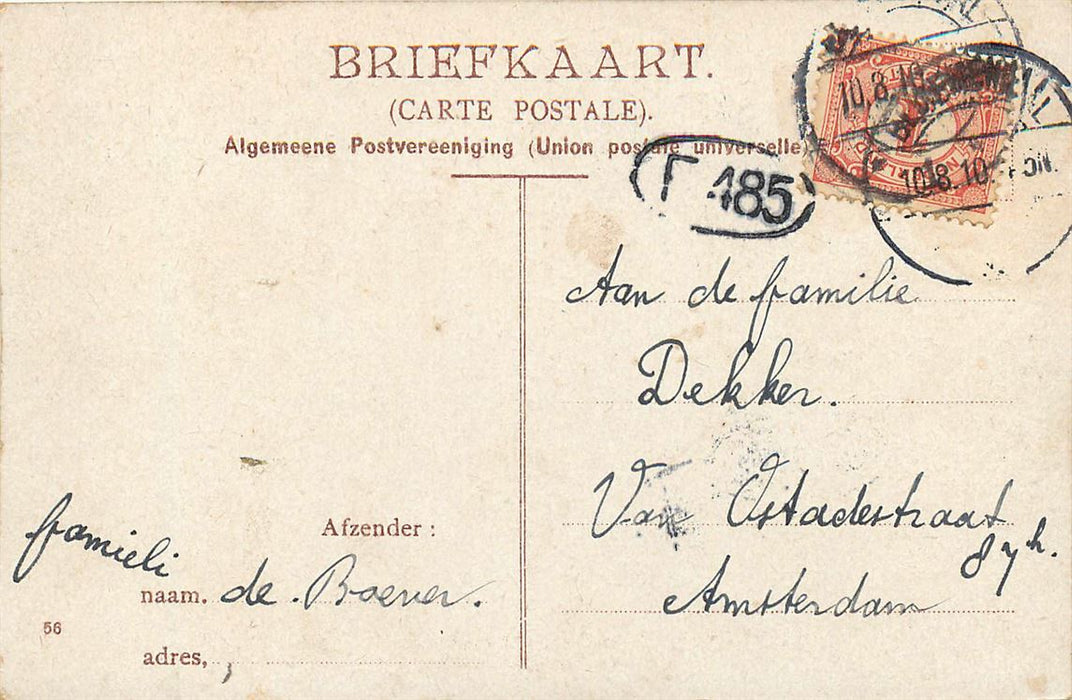 BRIEFKAART.
(CARTE POSTALE).
Algemeene Postvereeniging (Union postale universelle)
10.8.10
10.8.10
485
Aan de familie
Dekker.
Van Ostadestraat
87 h.
Amsterdam
Afzender:
famieli
naam. de Boever.
56
adres,